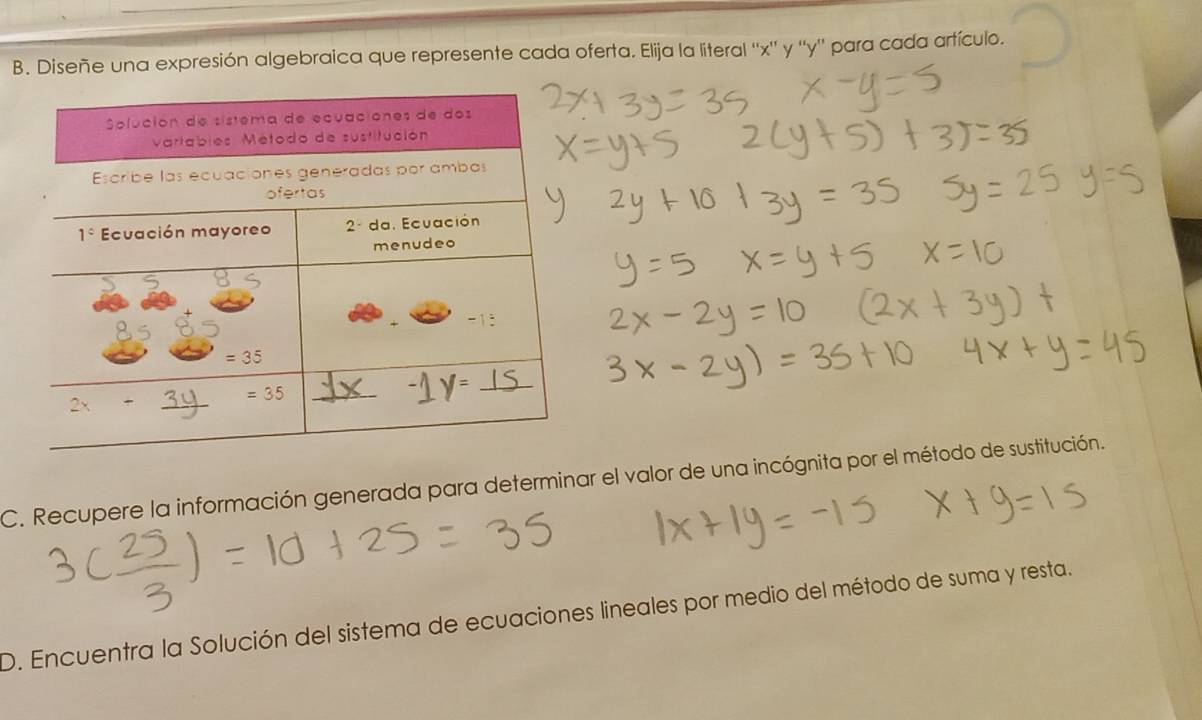 B. Diseñe una expresión algebraica que represente cada oferta. Elija la literal "x" y "y" para cada artículo.
2x+3y=35 x-y=5
x=y+5 2(y+5)+3)=35
y 2y+10+3y=35 5y=25 y=5
y=5 x=y+5 x=10
2x-2y=10 (2x+3y)+
3x-2y)=35+10 4x+y=45
Solución de sistema de ecuaciones de dos
variables: Método de sustitución
Escribe las ecuaciones generadas por ambas
ofertas
1° Ecuación mayoreo
5 5 85
+
85 85
= 35
2x + 3y = 35
2- da. Ecuación
menudeo
+
1x -1y= 15
C. Recupere la información generada para determinar el valor de una incógnita por el método de sustitución.
3(25/3)=10+25=35 1x+1y=-15 x+y=15
D. Encuentra la Solución del sistema de ecuaciones lineales por medio del método de suma y resta.